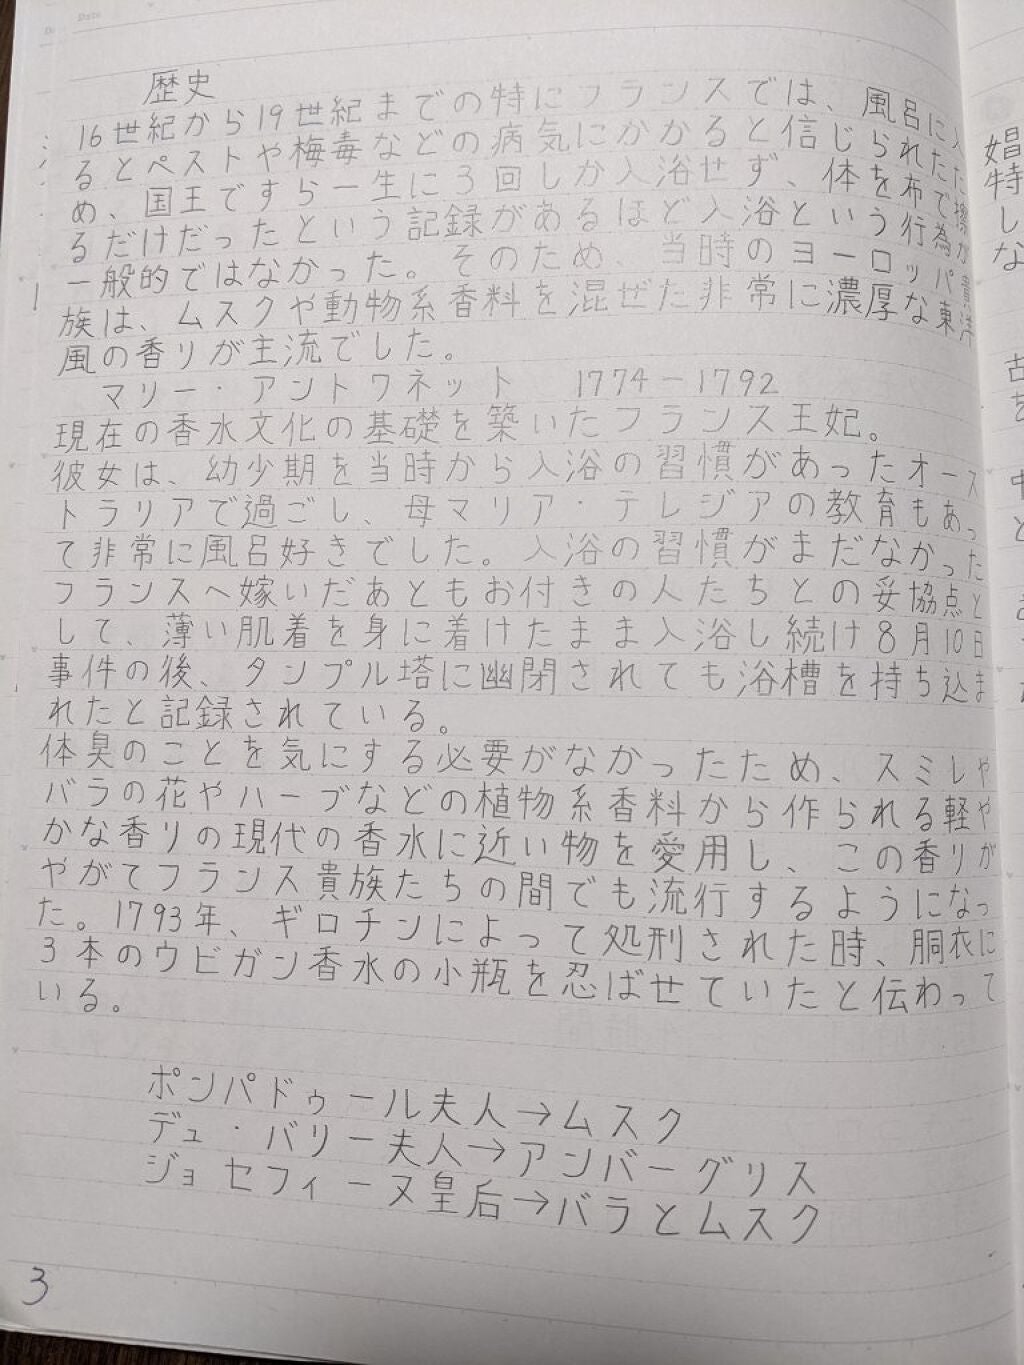 Date
歴史
16世紀から19世紀までの特にフランスでは、風呂に入
るとペストや梅毒などの病気にかかると信じられたた
め、国王ですら一生に3回しか入浴せず、体を布で擦
るだけだったという記録があるほど入浴という行為が
一般的ではなかった。そのため、当時のヨーロッパ貴
族は、ムスクや動物系香料を混ぜた非常に濃厚な東洋
風の香りが主流でした。
マリー・アントワネット 1774-1792
現在の香水文化の基礎を築いたフランス王妃。
彼女は、幼少期を当時から入浴の習慣があったオース
トラリアで過ごし、母マリア・テレジアの教育もあっ
て非常に風呂好きでした。入浴の習慣がまだなかった
フランスへ嫁いだあともお付きの人たちとの妥協点と
して、薄い肌着を身に着けたまま入浴し続け8月10日
事件の後、タンプル塔に幽閉されても浴槽を持ち込ま
れたと記録されている。
体臭のことを気にする必要がなかったため、スミレや
バラの花やハーブなどの植物系香料から作られる軽や
かな香りの現代の香水に近い物を愛用し、この香りが
やがてフランス貴族たちの間でも流行するようになっ
た。1793年、ギロチンによって処刑された時、胴衣に
3本のウビガン香水の小瓶を忍ばせていたと伝わって
いる。
ポンパドゥール夫人→ムスク
デュ・バリー夫人→アンバーグリス
ジョセフィーヌ皇后→バラとムスク
3
娼
特
しな
古
を
中
と